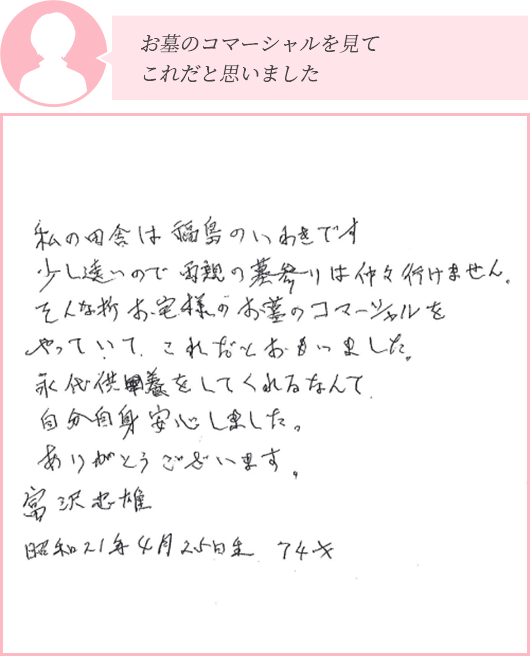 お墓のコマーシャルを見て
これだと思いました
私の田舎は福島のいわきです
少し遠いので両親の墓参りは仲々行けません。
そんな折お宅様のお墓のコマーシャルを
やっていて、これだとおもいました。
永代供養をしてくれるなんて、
自分自身安心しました。
ありがとうございます。
富沢忠雄
昭和21年4月25日生 74才